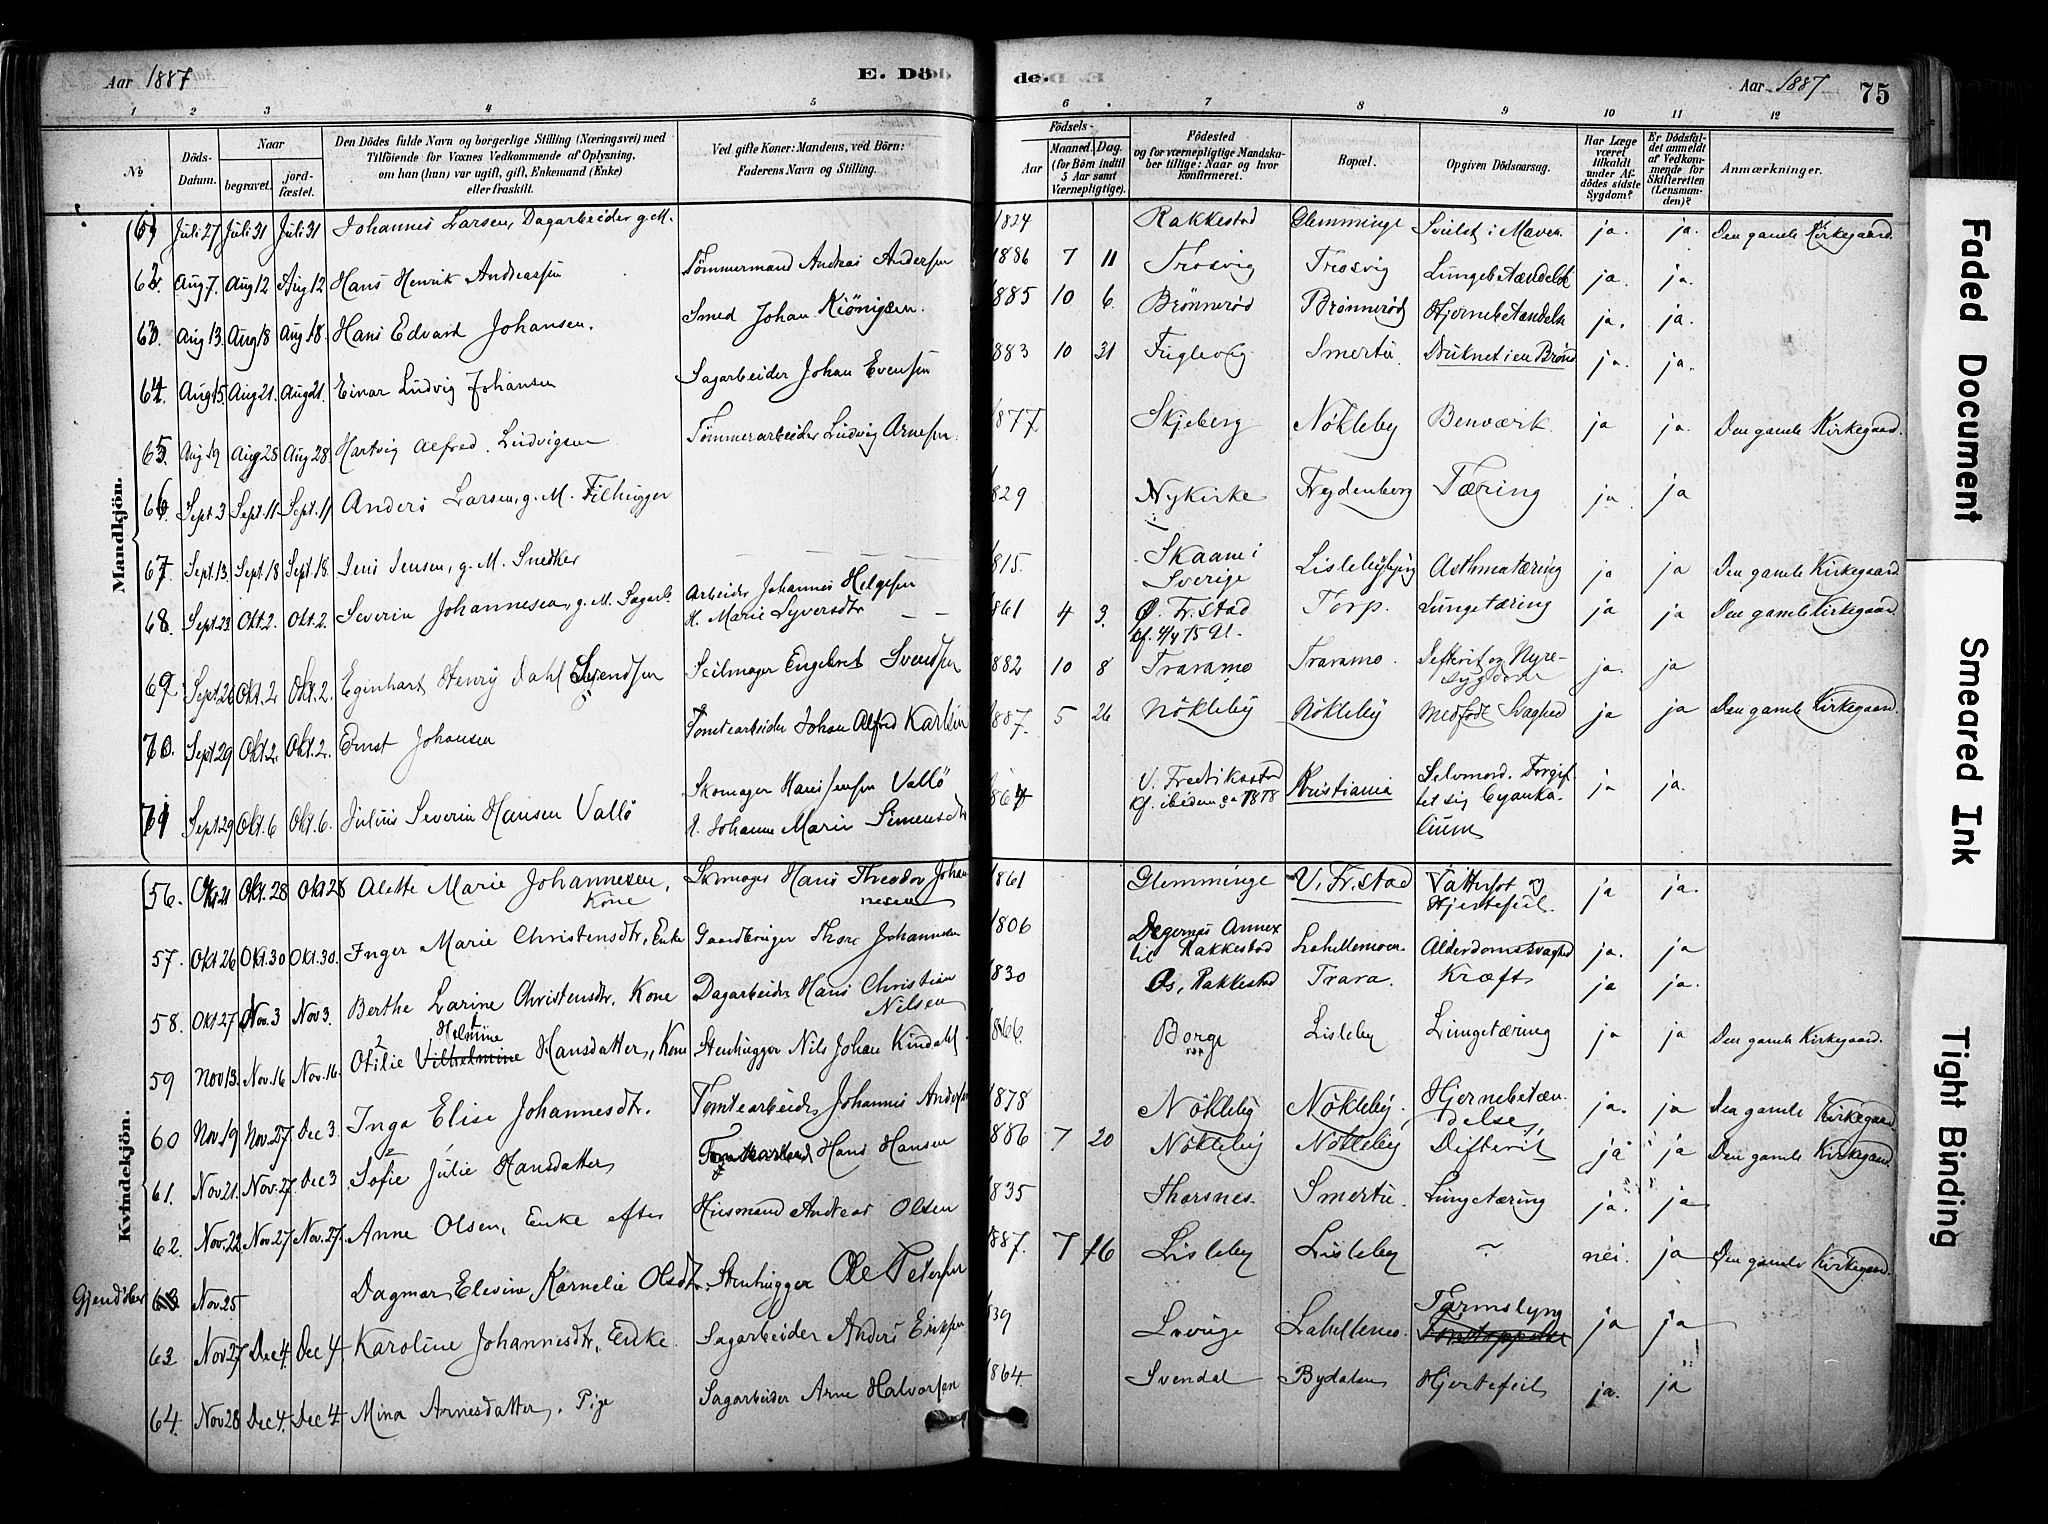 Aar 1887 E. Dö de. Aar 1887 75
1 2 3 4 5 6 7 8 9 10 11 12
No Döds-Datum. Naar begravet. jord-fæstet. Den Dödes fulde Navn og borgerlige Stilling (Næringsvei) med Tilföiende for Voxnes Vedkommende af Oplysning, om han (hun) var ugift, gift, Enkemand (Enke) eller fraskilt. Ved gifte Koner: Mandens, ved Börn: Faderens Navn og Stilling. Födsels- Aar Maaned. Dag. (for Börn indtil 5 Aar samt Værnepligtige). Födested og for værnepligtige Mandskaber tillige: Naar og hvor Konfirmeret. Bopæl. Opgiven Dödsaarsag. Har Læge været tilkaldt under Afdödes sidste Sygdom? Er Dödsfaldet anmeldt af Vedkommende for Skifteretten (Lensmanden)? Anmærkninger.
Mandkjön.
61 Juli 27 Juli 31 Juli 31 Johannes Larsen, Dagarbeider g. M. 1824 Rakkestad Glemminge Svulst i Maven ja. ja. Den gamle Kirkegaard.
62. Aug 7. Aug 12 Aug 12 Hans Henrik Andreassen Tömmermand Andreas Andersen 1886 7 11 Trosvig Trosvig Lungebetændelse ja. ja.
63. Aug 13. Aug 18 Aug 18. Hans Edvard Johansen. Smed Johan 1885 10 6. Brönnerød Brönnerød Hjernebetændelse ja. ja.
64. Aug 15. Aug 21. Aug 21. Einar Ludvig Johansen Sagarbeider Johan Evensen 1883 10 31 Fuglevig Smertu. Druknet i en Brønd ja. ja.
65. Aug 19 Aug 28 Aug 28. Hartvig Alfred Ludvigsen Tömmerarbeider Ludvig Arnesen. 1877. Skjeberg Nökleby Benværk. ja ja. Den gamle Kirkegaard.
66. Sept. 3 Sept. 11 Sept. 11 Anders Larsen, g. M. Filhugger 1829 Nykirke Frydenberg Tæring ja. ja
67. Sept. 13. Sept. 18 Sept. 18. Jens Jensen, g. M. Snedker 1815. Skaane i Sverige Lislebybyen Asthmatæring ja ja Den gamle Kirkegaard
68. Sept. 23 Okt. 2. Okt. 2. Severin Johannesen, g. M. Sagarb. Arbeider Johannes Helgesen H. Marie Syversdtr 1861 4 3. Ø. Fr.stad kf. 4/4 75 Gl. Torp. Lungetæring ja ja Den gamle Kirkegaard.
69. Sept. 26 Okt. 2 Okt. 2. Eginhart Henry Dahl Svendsen Seilmager Engebret Svendsen 1882 10 8 Traramo Traramo. Difterit og Nyresygdom ja. ja
70. Sept. 29 Okt. 2. Okt. 2. Ernst Johansen Tomtearbeider Johan Alfred Karlsen 1887. 5 26 Nökleby Nökleby Medfödt Svaghed ja ja Den gamle Kirkegaard.
71 Sept. 29 Okt. 6 Okt. 6. Julius Severin Hansen Vallö Skomager Hans Jensen Vallö H. Johanne Marie Simensdtr 1864 V. Fredriksstad Kf. ibidem 1878 Kristiania Selvmord. Forgiftet sig Cyankalium ja ja.
Kvindekjön.
56. Okt. 21 Okt. 28 Okt 28 Alette Marie Johannesen, Kone Skomager Hans Theodor Johannesen 1861 Glemminge V. Fr.stad Vattersot og Hjertefeil. ja ja.
57. Okt 26 Okt. 30 Okt. 30. Inger Marie Christensdtr, Enke Gaardbruger Thore Johannesen 1806 Degernes Annex til Rakkestad Lahellemoen Alderdomssvaghed ja. ja
58. Okt 27 Nov. 3 Nov 3. Berthe Larine Christensdtr, Kone Dagarbeider Hans Christian Nilsen 1830 Os, Rakkestad Trara. Kræft ja ja.
59 Nov 13. Nov. 16 Nov. 16. Otilie Vilhelmine Helmine Hansdatter, Kone Stenhugger Nils Johan Kindahl 1866. Borge Lisleby Lungetæring ja ja Den gamle Kirkegaard.
60 Nov. 19 Nov. 27 Dec 3. Inga Elise Johannesdtr. Tomtearbeider Johannes Andersen 1878 Nökleby Nökleby. Hjernebetændelse, ja. ja Den gamle Kirkegaard
61. Nov 21. Nov. 27. Dec 3 Sofie Julie Hansdatter Hans Hansen 1886 7 20 Nökleby Nökleby Difterit ja ja Den gamle Kirkegaard.
62. Nov. 22. Nov 27 Nov. 27. Anne Olsen, Enke efter Husmand Andreas Olsen 1835 Thorsnes. Smertu. Lungetæring ja. ja
63 Nov 25 Dagmar Elevine Karnelie Olsdtr. Stenhugger Ole Petersen 1887. 7 16 Lisleby Lisleby nei. ja Den gamle Kirkegaard.
63. Nov 27 Dec 4. Dec 4. Karoline Johannesdtr, Enke. Sagarbeider Anders Eriksen 1839 Sverige Lahellemo. Tarmslyng ja ja
64. Nov 28 Dec 4. Dec 4. Mina Arnesdatter, Pige Sagarbeider Arne Halvorsen 1864. Svendal Bydalen Hjertefeil ja. ja
Faded Document
Smeared Ink
Tight Binding